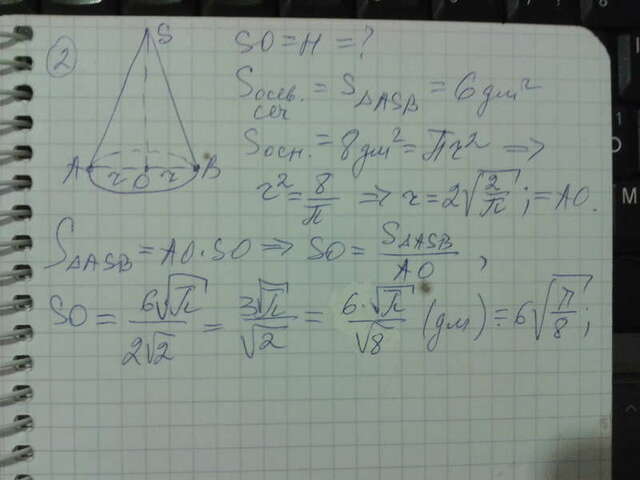 2
S
A
r O r
B
SO = H = ?
S осев. сеч = S△ASB = 6 дм²
Sосн. = 8 дм² = πr² =>
r² = 8/π => r = 2√(2/π); = AO.
S△ASB = AO · SO => SO = S△ASB/AO,
SO = 6√π/2√2 = 3√π/√2 = 6·√π/√8 (дм) = 6√(π/8);